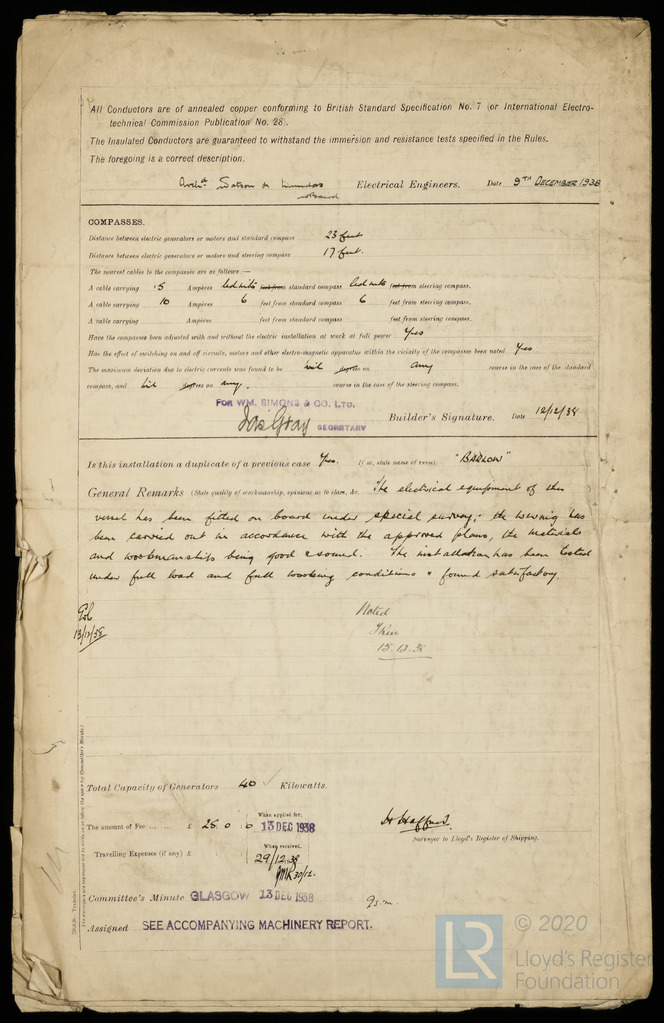 All Conductors are of annealed copper conforming to British Standard Specification No. 7 (or International Electro-
technical Commission Publication No. 28).
The Insulated Conductors are guaranteed to withstand the immersion and resistance tests specified in the Rules.
The foregoing is a correct description.
Electrical Engineers. Date 9TH DECEMBER 1938
COMPASSES.
Distance between electric generators or motors and standard compass 23 feet
Distance between electric generators or motors and steering compass 17 feet.
The nearest cables to the compasses are as follows:—
A cable carrying .5 Ampères led into feet from standard compass led into feet from steering compass.
A cable carrying 10 Ampères 6 feet from standard compass 6 feet from steering compass.
A cable carrying Ampères feet from standard compass feet from steering compass.
Have the compasses been adjusted with and without the electric installation at work at full power Yes
Has the effect of switching on and off circuits, motors and other electro-magnetic apparatus within the vicinity of the compasses been noted Yes
The maximum deviation due to electric currents was found to be nil degrees on any course in the case of the standard
compass, and nil degrees on any. course in the case of the steering compass.
FOR WM. SIMONS & CO. LTD.
Jas Gray SECRETARY Builder's Signature. Date 12/12/38
Is this installation a duplicate of a previous case Yes. If so, state name of vessel "BARLOW"
General Remarks (State quality of workmanship, opinions as to class, &c. The electrical equipment of this
vessel has been fitted on board under special survey; the wiring has
been carried out in accordance with the approved plans, the materials
and workmanship being good & sound. The installation has been tested
under full load and full working conditions & found satisfactory.
13/12/38
Noted
15.12.38
Total Capacity of Generators 40 Kilowatts.
The amount of Fee ... ... £ 25 0 0 When applied for, 13 DEC 1938
Surveyor to Lloyd's Register of Shipping.
Travelling Expenses (if any) £ When received, 29/12.38
30/12.
Committee's Minute GLASGOW 13 DEC 1938
Assigned SEE ACCOMPANYING MACHINERY REPORT.
© 2020
LR Lloyd's Register
Foundation